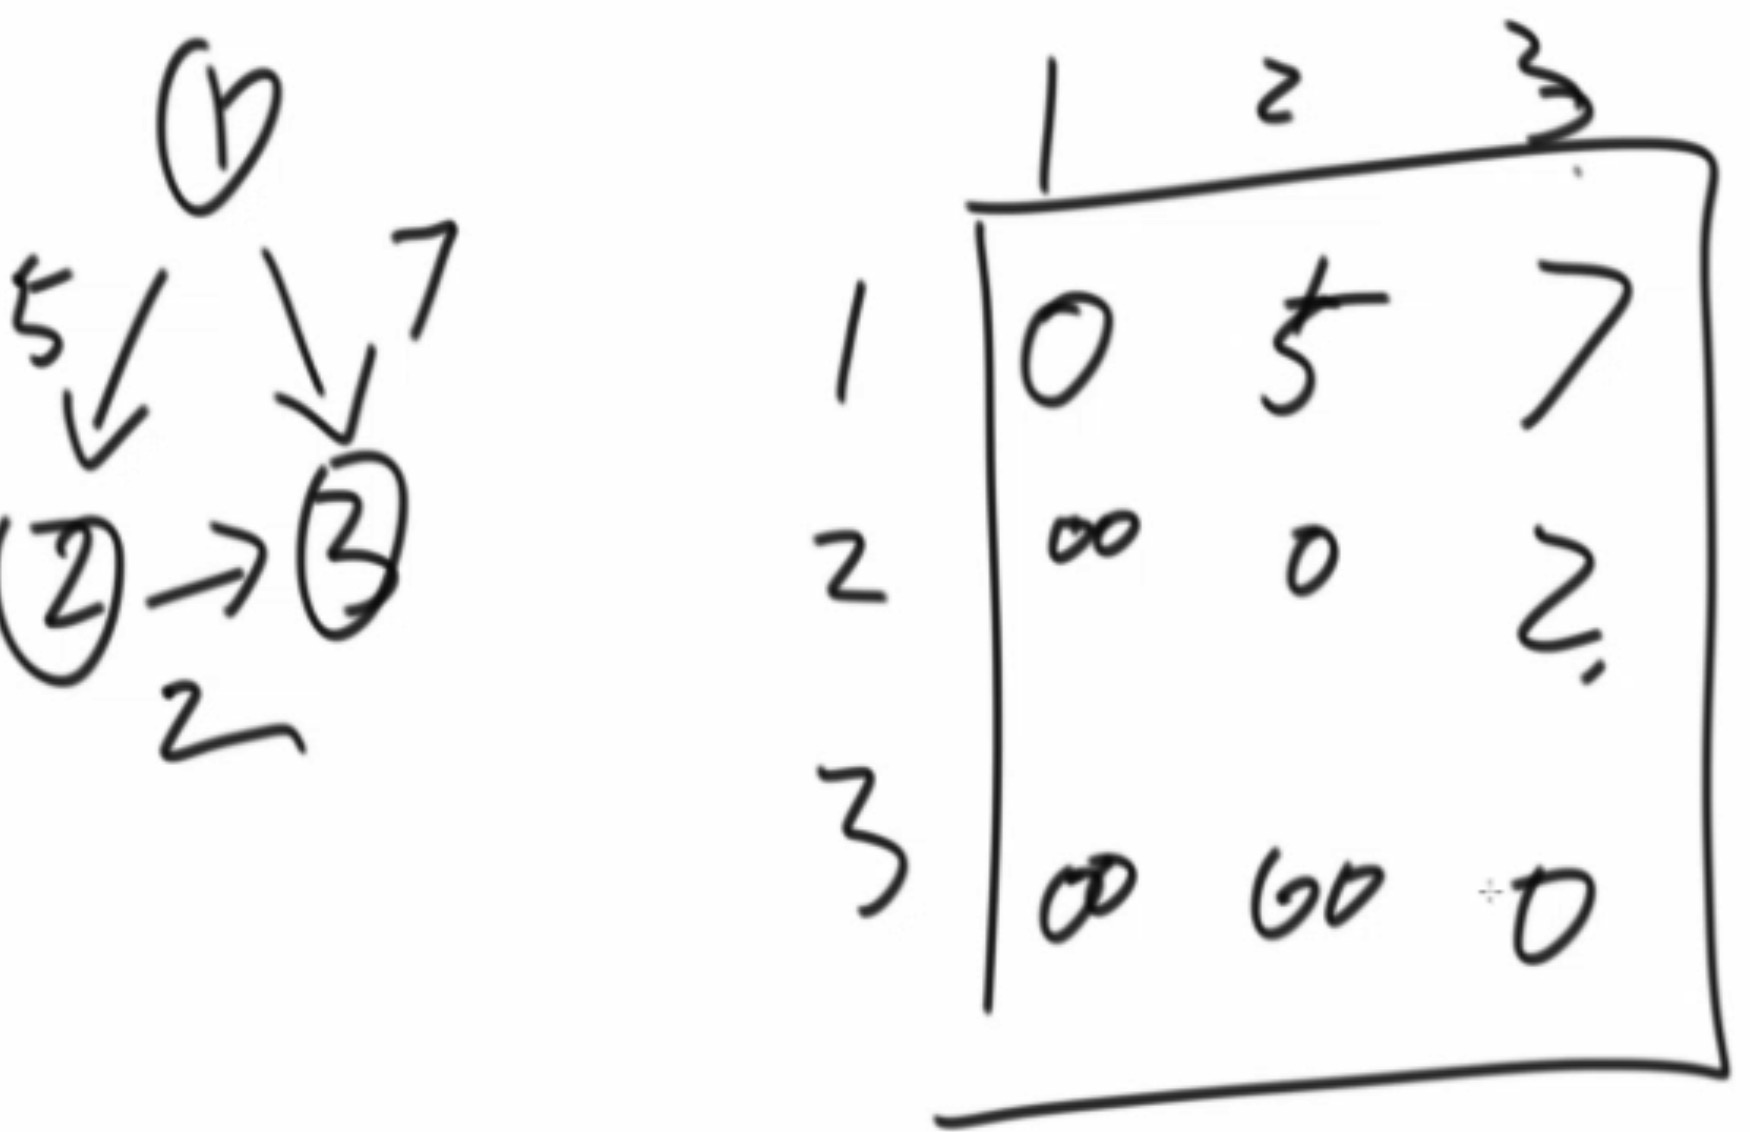 1
5 7
2 3
2
1 2 3
1 0 5 7
2 ∞ 0 2
3 ∞ ∞ 0